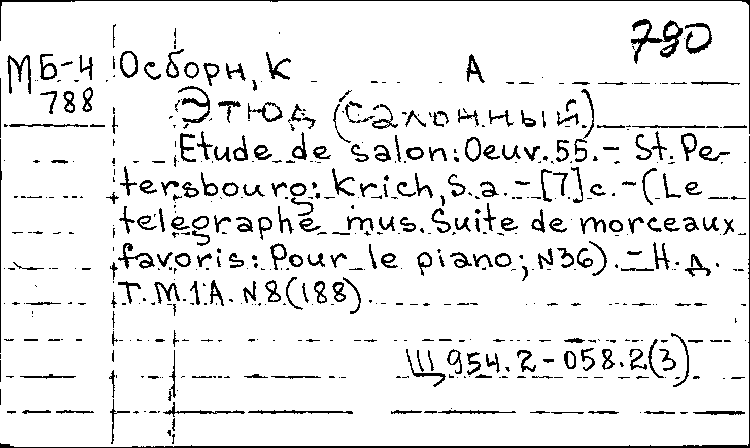 790
МБ-4 Осборн, К А
788 Этюд (салонный)
Etude de salon: Oeuv. 55. – St. Pe-
tersbourg: Krich, S.a. – [7] c. – (Le
telegraphe mus. Suite de morceaux
favoris: Pour le piano; N36). – Н.д.
Т.М.1А. N8(188).
Щ 954.2-058.2(3)